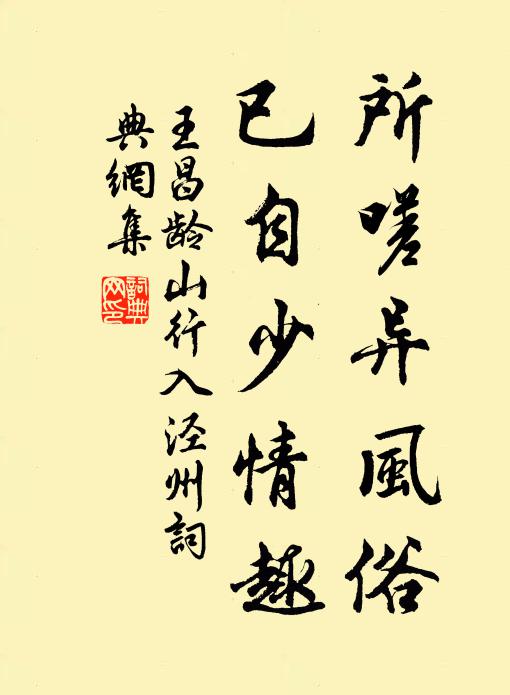 所嗟异風俗
已自少情趣
王昌龄山行入泾州詞
典網集
詞典
网印